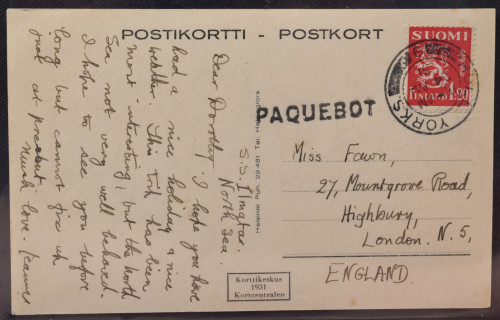 POSTIKORTTI - POSTKORT
S.S. Ilmatar.
North Sea.
Dear Dorothy, I hope you have
had a nice holiday & nice
weather. This trip has been
most interesting, but the North
Sea not very well behaved.
I hope to see you before
long but cannot fix it
just at present.
Much love -
Helsinki Puh. 22481 Tel. Helsingfors
Korttikeskus
1931
Kortcentralen
PAQUEBOT
SUOMI
FINLAND 1.20
YORKS
Miss Fawn,
27, Mountgrove Road,
Highbury,
London. N.5,
ENGLAND.